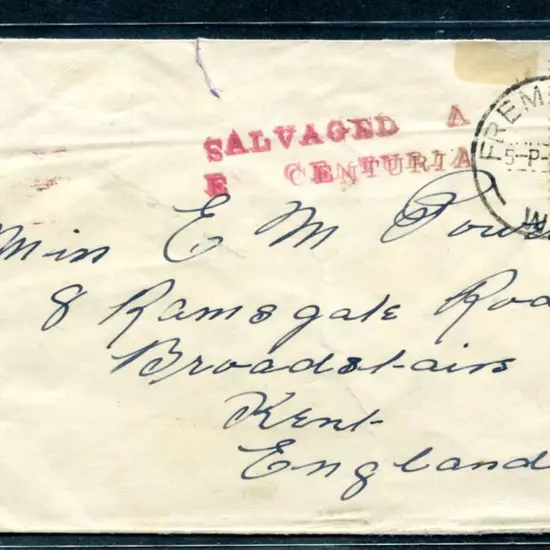 SALVAGED A
E CENTURIA
FREM
5-P-
W
Miss E M Powe
8 Ramsgate Roa
Broadstairs
Kent
England